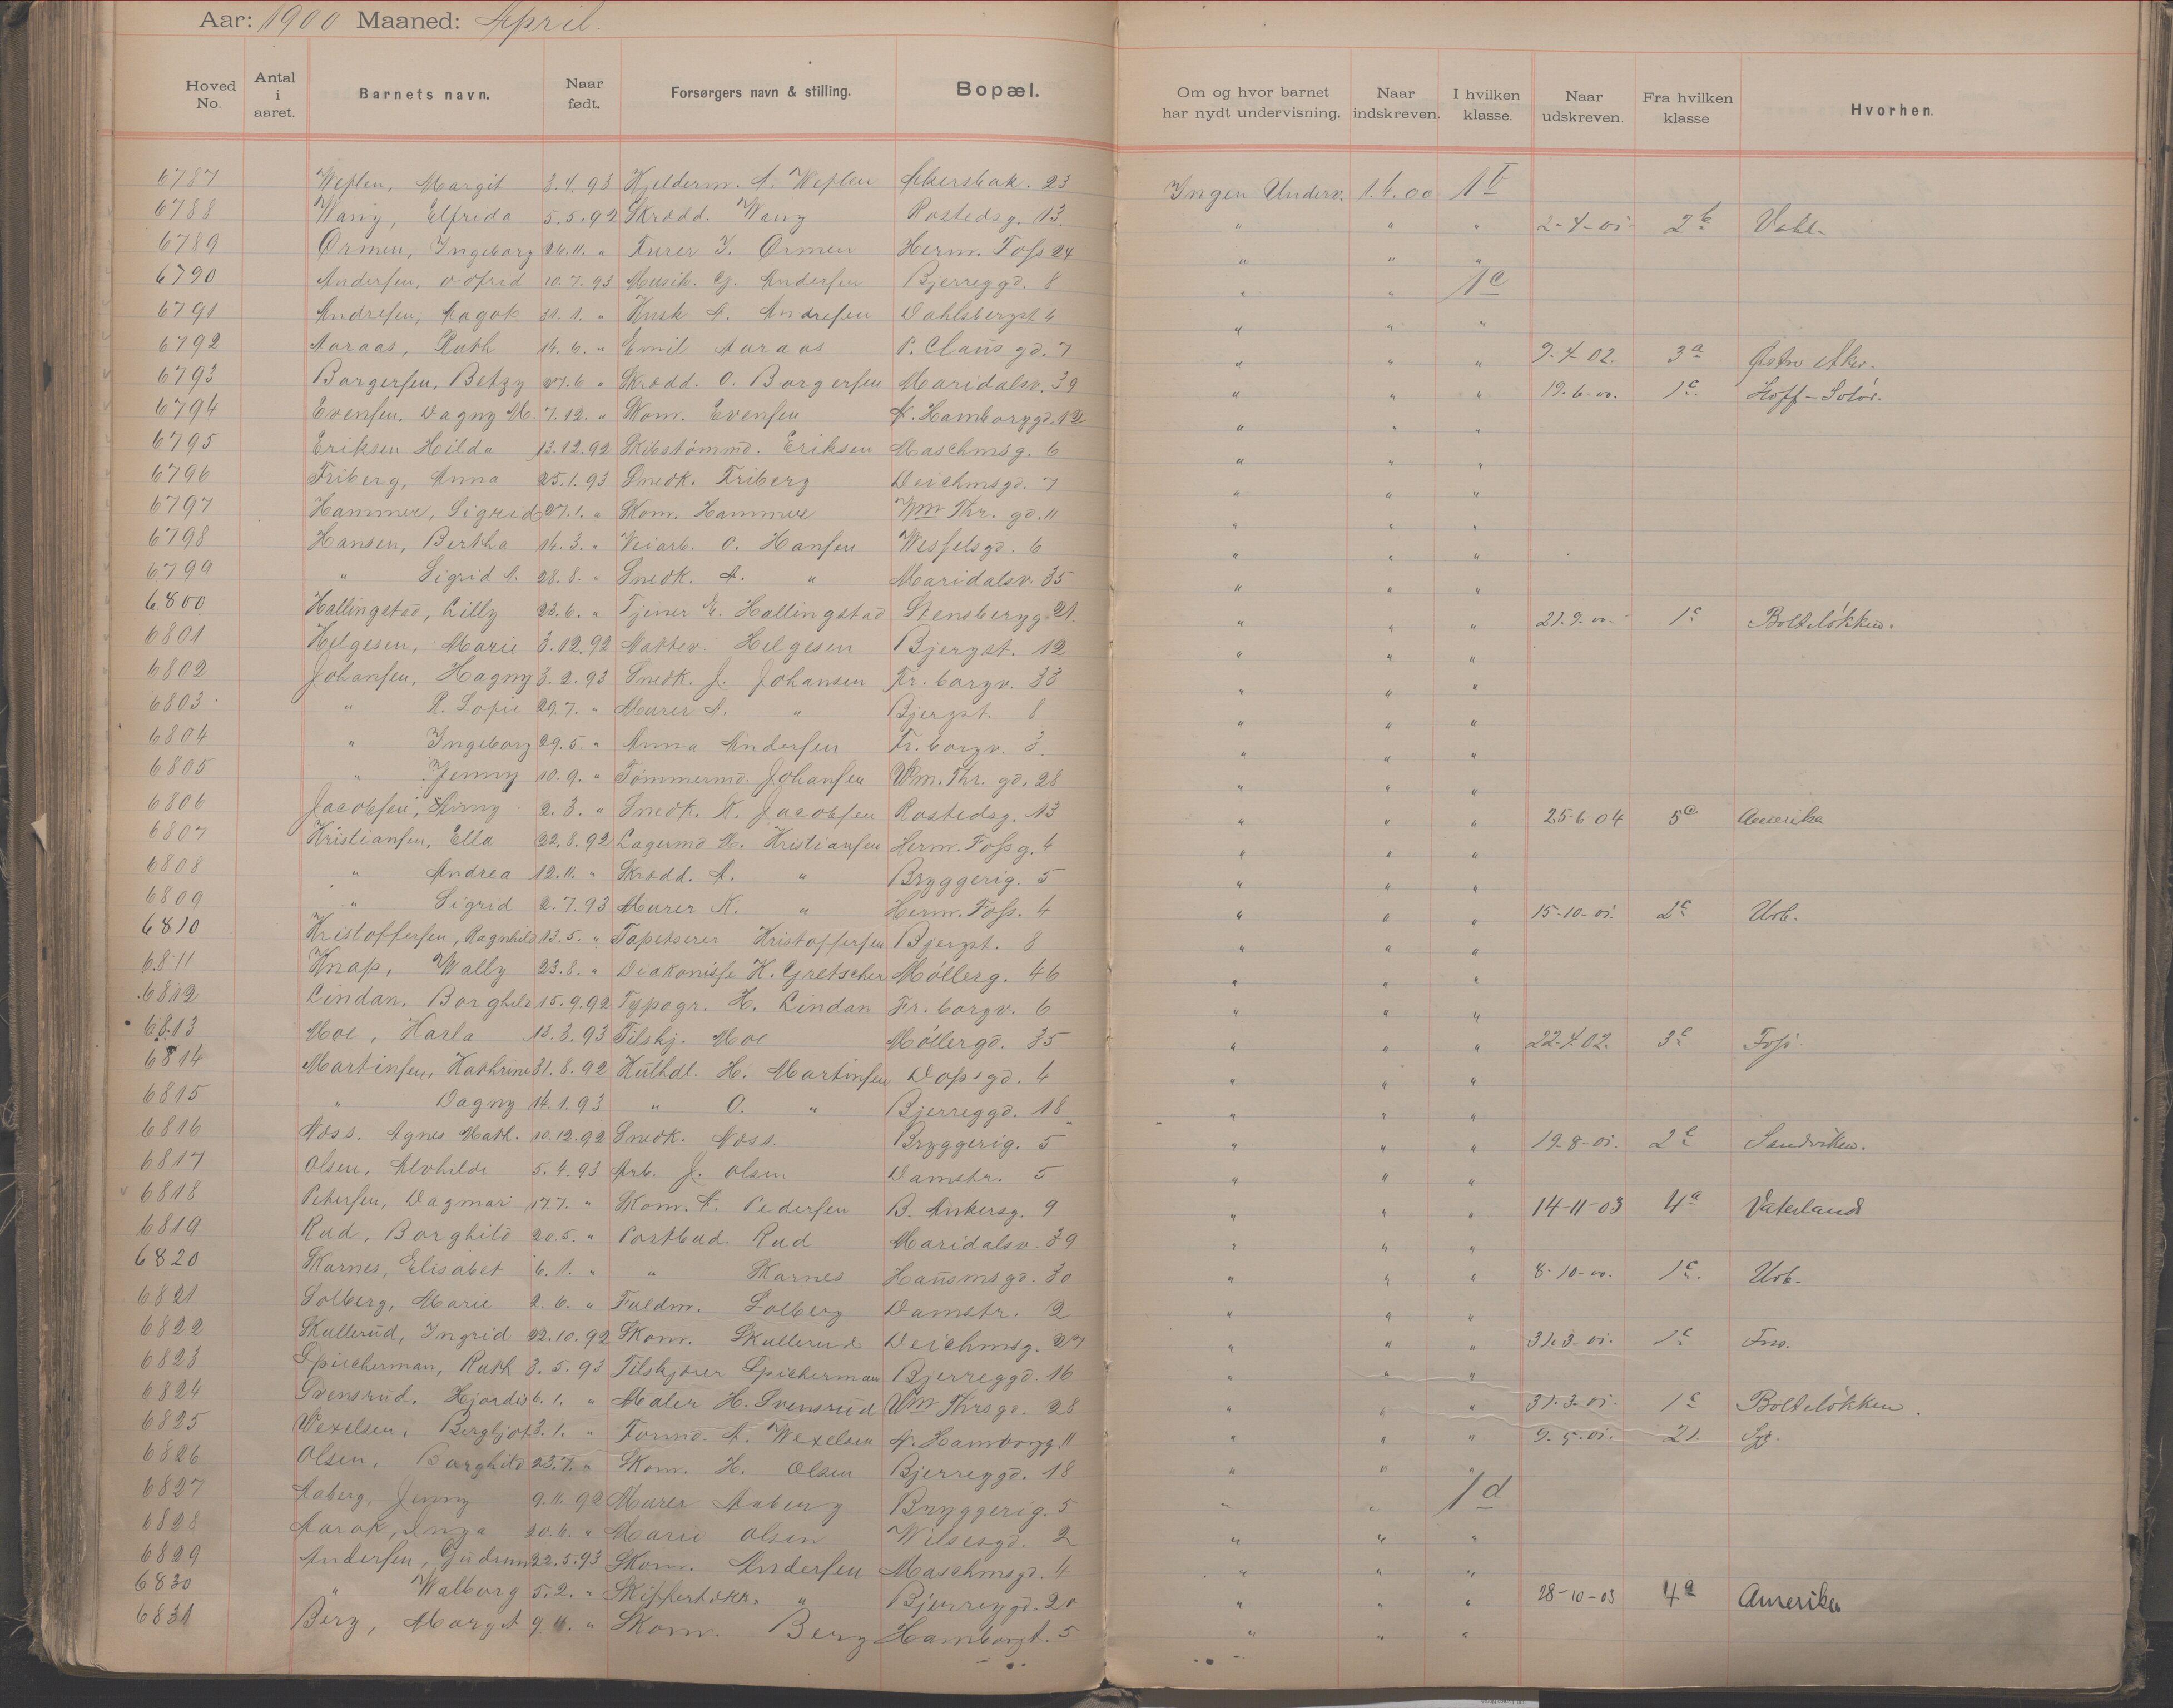 Aar: 1900 Maaned: April.
Hoved No. Antal i aaret. Barnets navn. Naar født. Forsørgers navn & stilling. Bopæl. Om og hvor barnet har nydt undervisning. Naar indskreven. I hvilken klasse. Naar udskreven. Fra hvilken klasse Hvorhen.
6787 Margit 3.4.93 A. 23 Ingen Underv. 1.4.00 1b
6788 Wang, Elfrida 5.5.92 Skrædd. Wang Rostedsg. 13 " " " 2-4-01 2b Vahl.
6789 Ormen, Ingeborg 26.11. " Furer J. Ormen Herm. Foss 24 " " "
6790 Andersen, 10.7.93 Musik. Andersen Bjerreggd. 8 " " 1c
6791 Andresen, Aagot 31.1. " Kusk A. Andresen Dahlsbergst 4 " " "
6792 Aaraas, Ruth 14.6. " Emil Aaraas P. Claus gd. 7 " " " 9-4-02. 3a Østre Aker.
6793 Borgersen, Betzy 27.6 " Skrædd. O. Borgersen Maridalsv. 39 " " " 19-6-00. 1c Hoff-Solør.
6794 Evensen, Dagny M. 7.12. " Skom. Evensen N. Hamborggd. 12 " " "
6795 Eriksen Hilda 13.12.92 Skibstømmd. Eriksen Maschmsg. 6 " " "
6796 Friberg, Anna 25.1.93 Snedk. Friberg Deichmsgd. 7 " " "
6797 Hammer, Sigrid 27.1. " Skom. Hammer Wm Thr. gd. 11 " " "
6798 Hansen, Bertha 14.3. " Veiarb. O. Hansen Wesselsgd. 6 " " "
6799 " Sigrid A. 28.8. " Snedk. A. " Maridalsv. 35 " " "
6800 Hallingstad, Lilly 23.6. " Tjener E. Hallingstad Stensbergg. 21. " " " 21.9-00. 1c Bolteløkken.
6801 Helgesen, Marie 3.12.92 Nattev. Helgesen Bjergst. 12 " " "
6802 Johansen, Hagny 3.2.93 Snedk. J. Johansen Fr. borgv. 33 " " "
6803 " R. Sofie 29.7. " Murer A. " Bjergst. 8 " " "
6804 " Ingeborg 29.5. " Anna Andersen Fr. borgv. 3. " " "
6805 " Jenny 10.9. " Tømmermd. Johansen Wm. Thr. gd. 28 " " "
6806 Jacobsen, 2.3. " Snedk. K. Jacobsen Rostedsg. 13 " " " 25-6-04 5a Amerika
6807 Kristiansen, Ella 22.8.92 Lagermd M. Kristiansen Herm. Fossg. 4 " " "
6808 " Andrea 12.11. " Skrædd. A. " Bryggerig. 5 " " "
6809 " Sigrid 2.7.93 Murer K. " Herm. Foss. 4 " " " 15-10-01. 2c Urb.
6810 Kristoffersen, Ragnhild 13.5. " Tapetserer Kristoffersen Bjergst. 8 " " "
6811 Knap, Wally 23.8. " Diakonisse K. Gretscher Møllerg. 46 " " "
6812 Lindan, Borghild 15.9.92 Typogr. H. Lindan Fr. borgv. 6 " " "
6813 Moe, Karla 13.3.93 Tilskj. Moe Møllergd. 35 " " " 22-4.02. 3c Foss.
6814 Martinsen, Kathrine 31.8.92 Kulhdl. H. Martinsen Dopsgd. 4 " " "
6815 " Dagny 14.1.93 " O. " Bjerreggd. 18 " " "
6816 Næss. Agnes Math. 10.12.92 Snedk. Næss Bryggerig. 5 " " " 19-8-01. 2c Sandviken.
6817 Olsen, Alvhilde 5.4.93 Arb. J. Olsen Damstr. 5 " " "
6818 Petersen, Dagmar 17.7. " Skom. A. Pedersen B. Ankersg. 9 " " " 14-11-03 4a Vaterland
6819 Rud, Borghild 20.5. " Postbud. Rud Maridalsv. 39 " " "
6820 Skarnes, Elisabet 6.1. " " Skarnes Hausmsgd. 30 " " " 8-10-00. 1c. Urb.
6821 Solberg, Marie 2.6. " Fuldm. Solberg Damstr. 2 " " "
6822 Skullerud, Ingrid 22.10.92 Skom. Skullerud Deichmsg. 27 " " " 31-3-01. 1c
6823 Spickerman, Ruth 3.5.93 Tilskjærer Spickerman Bjerreggd. 16 " " "
6824 Svensrud, Hjordis 6.1. " Maler H. Svensrud Wm Thrsgd. 28 " " " 31-3-01. 1c Bolteløkken.
6825 Wexelsen, Bergljot 3.1. " Formd. A. Wexelsen N. Hamborgg. 11 " " " 9-5-01. Syg.
6826 Olsen, Borghild 23.7. " Skom. H. Olsen Bjerreggd. 18 " " "
6827 Aaberg, Jenny 9.11.92 Murer Aaberg Bryggerig. 5 " " 1d
6828 Inga 20.6. " Marie Olsen Wilsesgd. 2 " " "
6829 Andersen, Gudrun 22.5.93 Skom. Andersen Maschmsgd. 4 " " "
6830 " Walborg 5.2. " " Bjerreggd. 20 " " " 28-10-03 4a Amerika
6831 Berg, Margit " Skom. Berg Hamborgt. 5 " " "